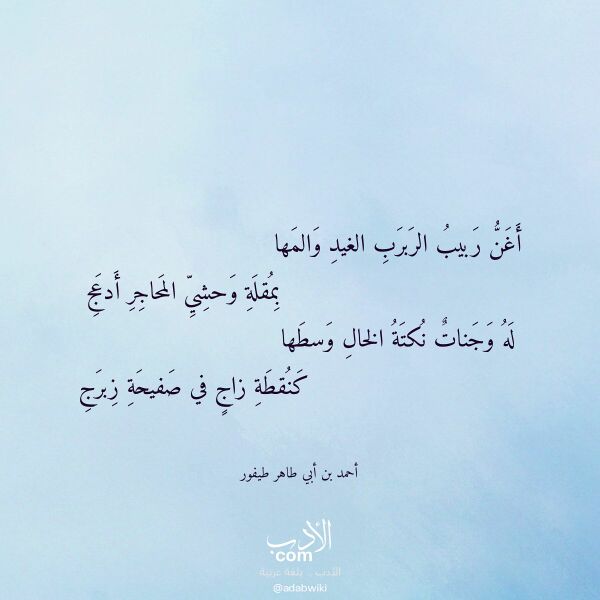 أَغَنُّ رَبيبُ الرَبرَبِ الغيدِ وَالمَها
بِمُقلَةِ وَحشِيِّ المَحاجِرِ أَدعَجِ
لَهُ وَجَناتٌ نُكتَةُ الخالِ وَسطَها
كَنُقطَةِ زاجٍ في صَفيحَةِ زِبرَجِ
أحمد بن أبي طاهر طيفور
الأدب
com
الأدب .. بلغة عربية
@adabwiki